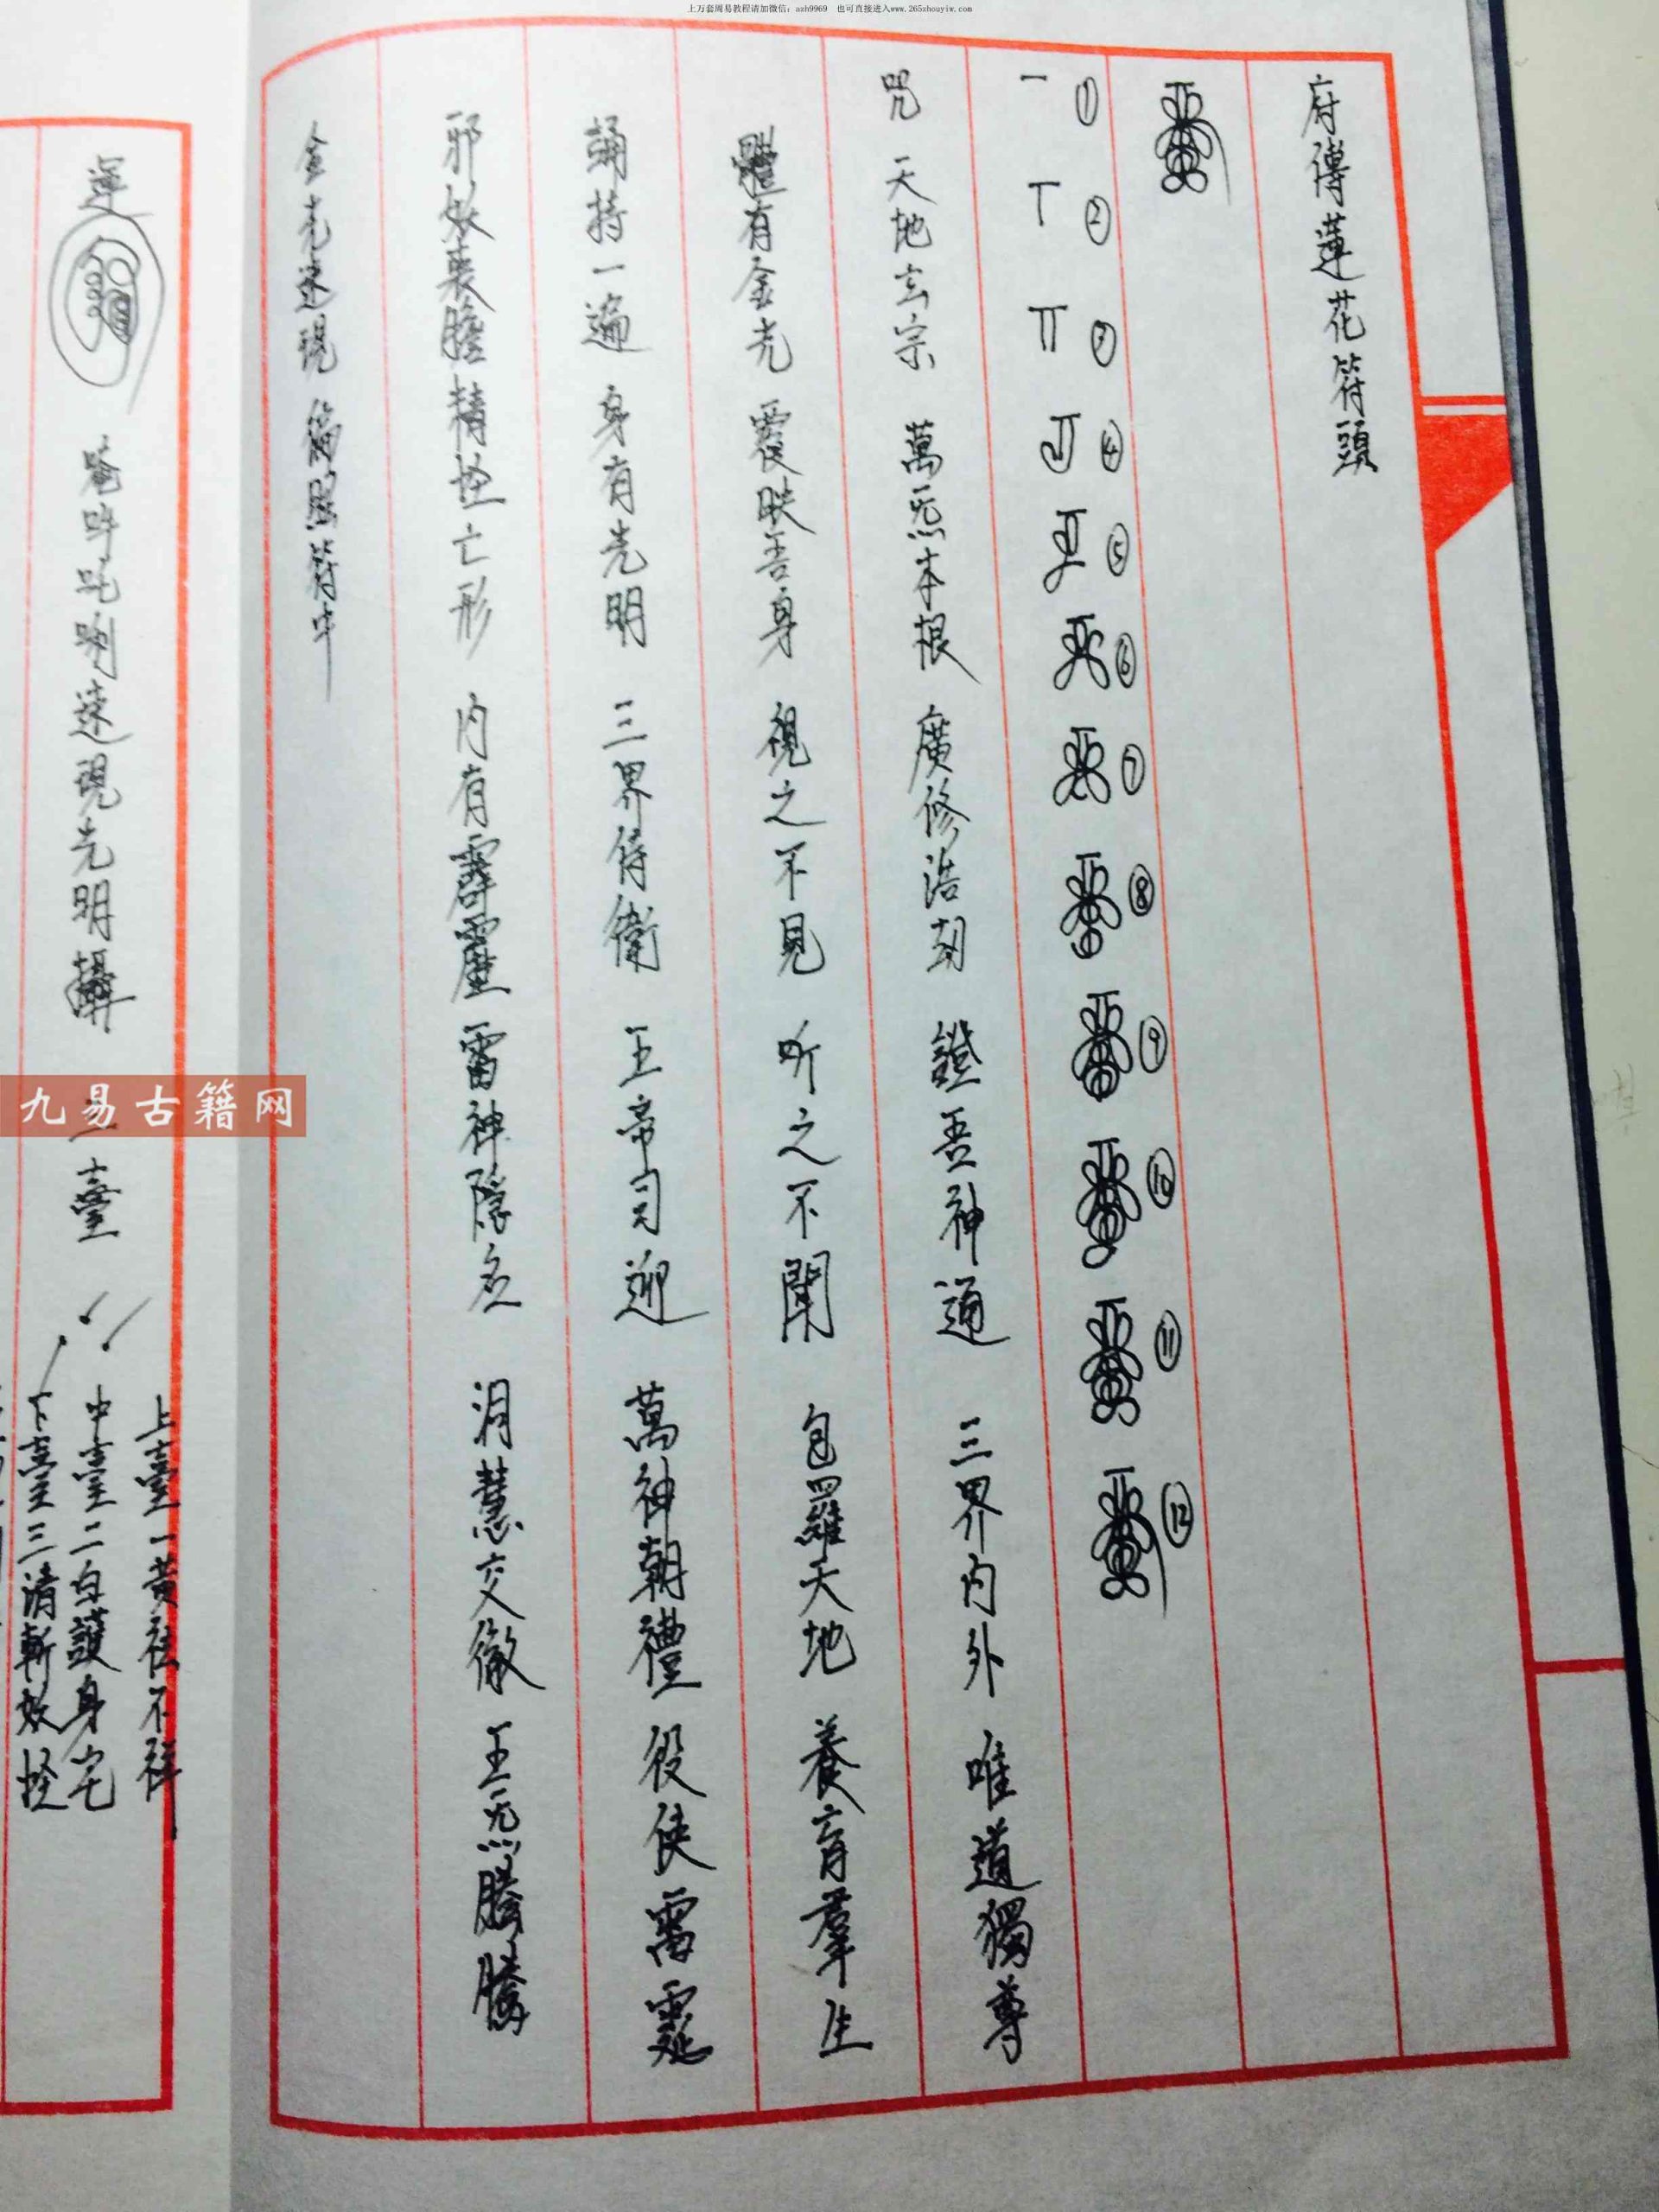 上万套周易教程请加微信：azh9969 也可直接进入www.265zhouyiw.com
府傳蓮花符頭
① ② ③ ④ ⑤ ⑥ ⑦ ⑧ ⑨ ⑩ ⑪ ⑫
咒 天地玄宗 萬炁本根 廣修浩劫 證吾神通 三界內外 唯道獨尊
體有金光 覆映吾身 視之不見 听之不聞 包羅天地 養育羣生
誦持一遍 身有光明 三界侍衛 五帝司迎 萬神朝禮 役使雷霆
邪妖喪膽 精怪亡形 內有霹靂 雷神隱名 洞慧交徹 五炁騰騰
金光速現 符中
運 唵吽吒唎速現光明攝 三臺
上臺一黃祛不祥
中臺二白護身宅
下臺三清斬妖怪
九易古籍网